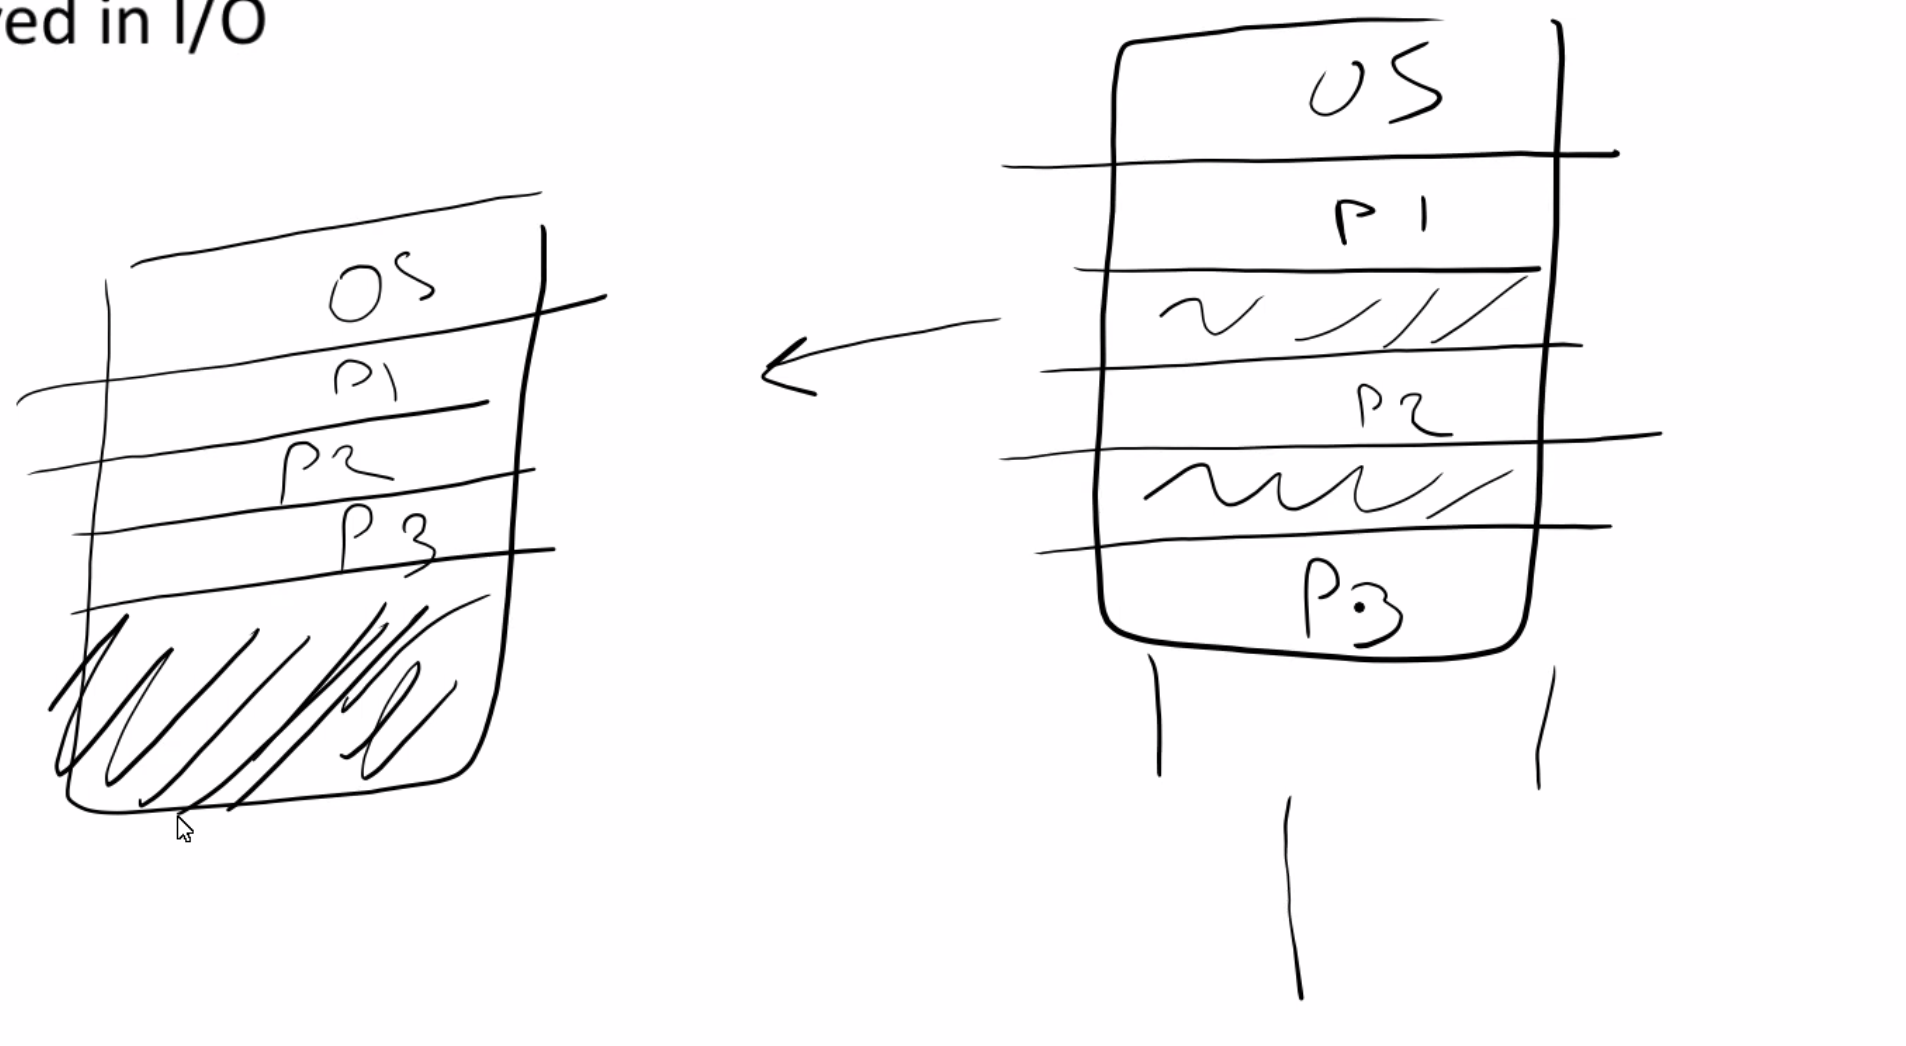 ved in I/O
OS
P1
P2
P3
OS
P1
P2
P3